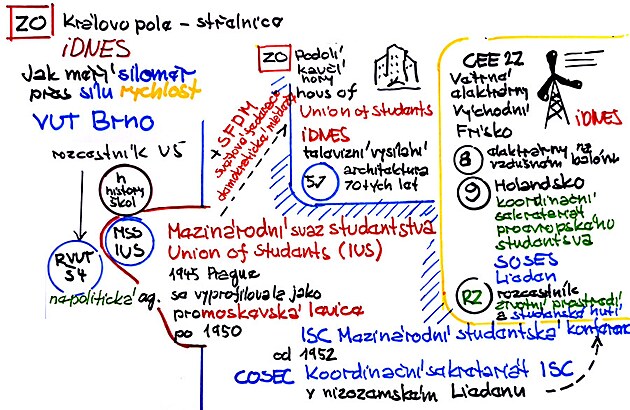 ZO Královo pole - střelnice
iDNES
Jak měří siloměr
přes sílu rychlost
VUT Brno
rozcestník US
h
history
škol
MSS
IUS
RVUT
54
nepolitická ag.
SFDM
světová federace
demokratické mládeže
ZO Podolí
kavčí
hory
hous of
Union of Students
iDNES
televizní vysílání
57 architektura
70tých let
Mezinárodní svaz studentstva
Union of Students (IUS)
1945 Prague
se vyprofilovala jako
promoskevská levice
po 1950
ISC Mezinárodní studentská konferenc
od 1952
COSEC Koordinační sekretariát ISC
v nizozemském Leidenu
CEE 22
Větrné
elektrárny
Východní
Frísko
iDNES
8 elektrárny na
vzdušném balónu
9 Holandsko
koordinační
sekretariát
proevropského
studentstva
SOSES
Leiden
R2 rozcestník
životní prostředí
a studenské hutí